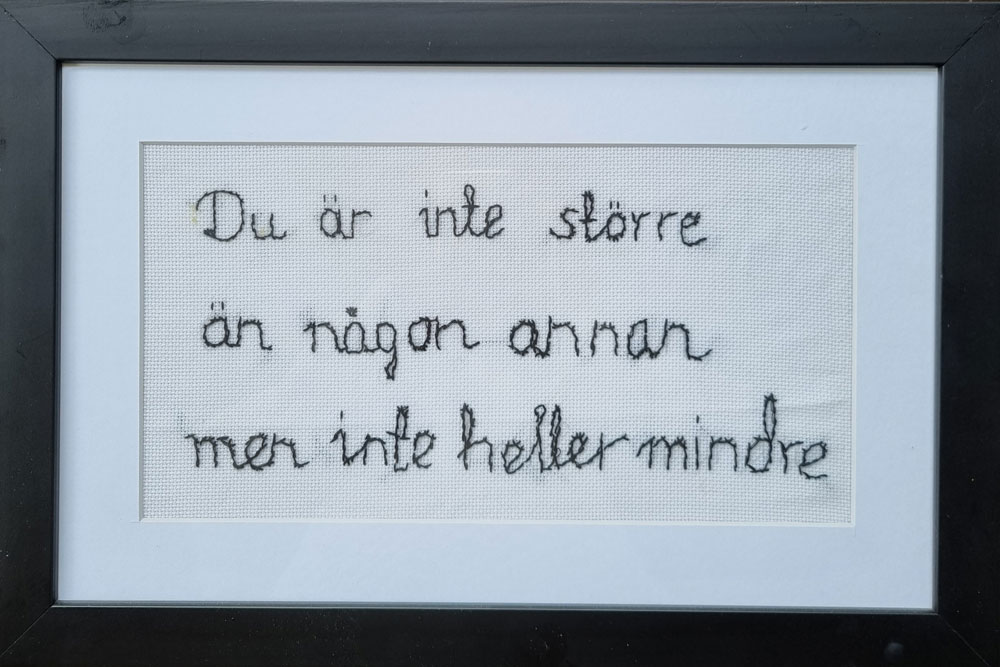 Du är inte större
än någon annan
men inte heller mindre